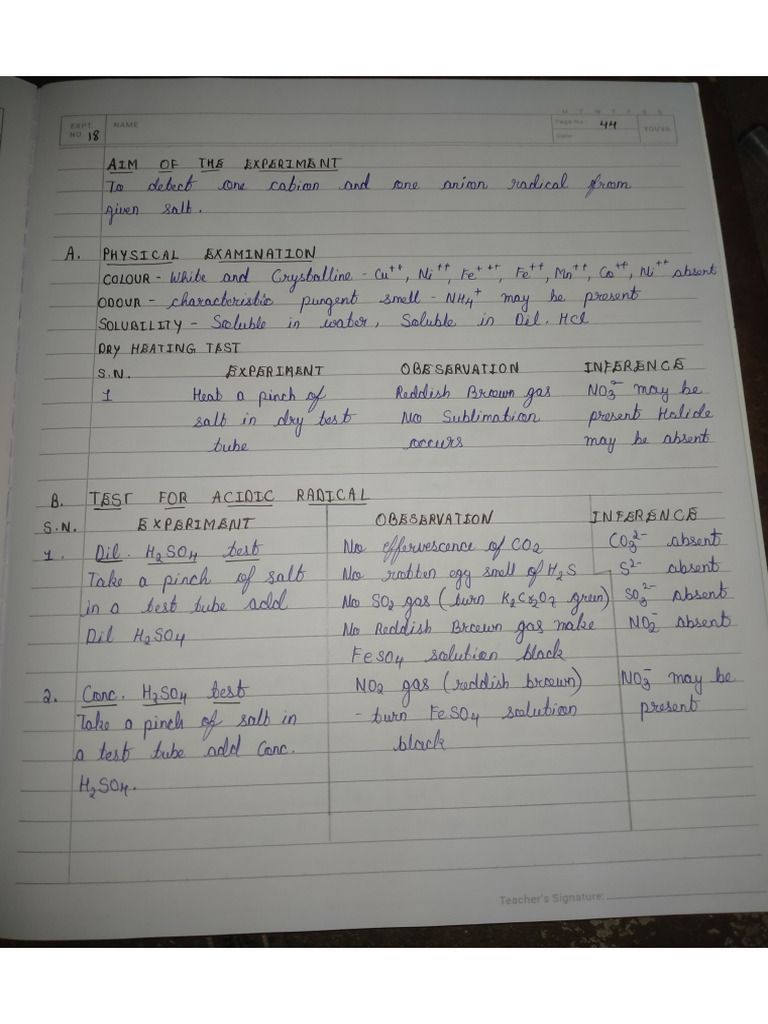 M T W T F S S
EXPT. NO. 18 NAME Page No. 44 YOUVA
Date:
AIM OF THE EXPERIMENT
To detect one cation and one anion radical from
given salt.
A. PHYSICAL EXAMINATION
COLOUR - White and Crystalline - Cu++, Ni++, Fe+++, Fe++, Mn++, Co++, Ni++ absent
ODOUR - characteristic pungent smell - NH4+ may be present
SOLUBILITY - Soluble in water, Soluble in Dil. HCl
DRY HEATING TEST
S.N. EXPERIMENT OBESERVATION INFERENCE
1 Heat a pinch of Reddish Brown gas NO3- may be
salt in dry test No Sublimation present Halide
tube occurs may be absent
B. TEST FOR ACIDIC RADICAL
S.N. EXPERIMENT OBESERVATION INFERENCE
1. Dil. H2SO4 test No effervescence of CO2 CO3^2- absent
Take a pinch of salt No rotten egg smell of H2S S^2- absent
in a test tube add No SO2 gas (turn K2Cr2O7 green) SO3^2- absent
Dil H2SO4 No Reddish Brown gas make NO2- absent
FeSO4 solution black
2. Conc. H2SO4 test NO2 gas (reddish brown) NO3- may be
Take a pinch of salt in - turn FeSO4 solution present
a test tube add Conc. black
H2SO4.
Teacher's Signature: